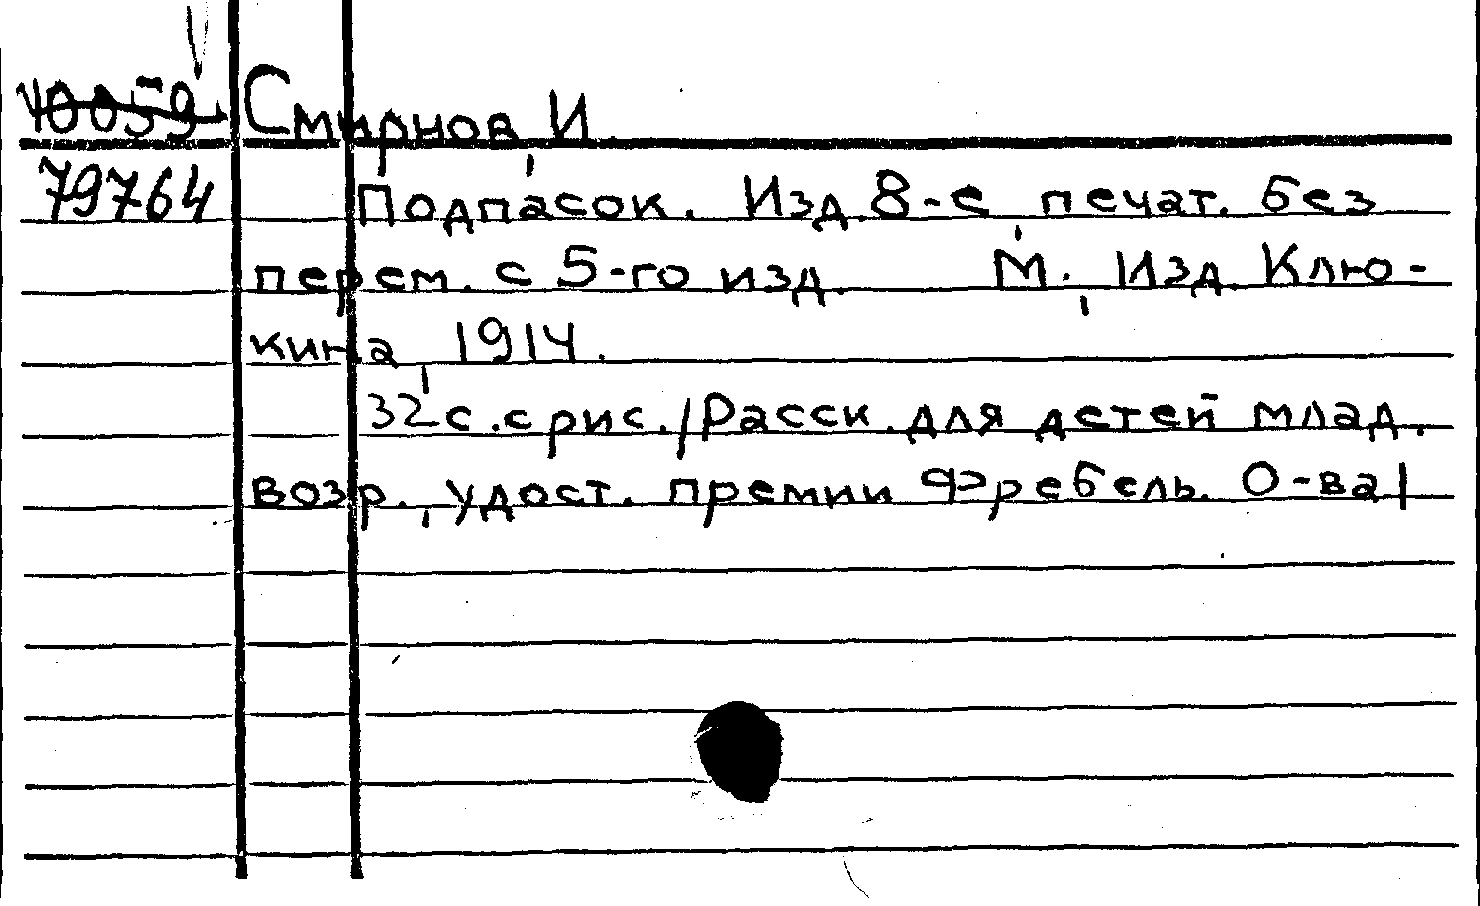 40059 Смирнов И.
79764 Подпасок. Изд. 8-е, печат. без
перем. с 5-го изд. М., Изд. Клю-
кина, 1914.
32 с. с рис. /Расск. для детей млад.
возр., удост. премии Фребель. О-ва/